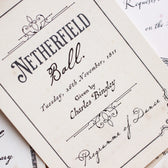 NETHERFIELD
Ball.
Tuesday, 26th November, 1811
Given by
Charles Bingley
Programme of Dances
Requests